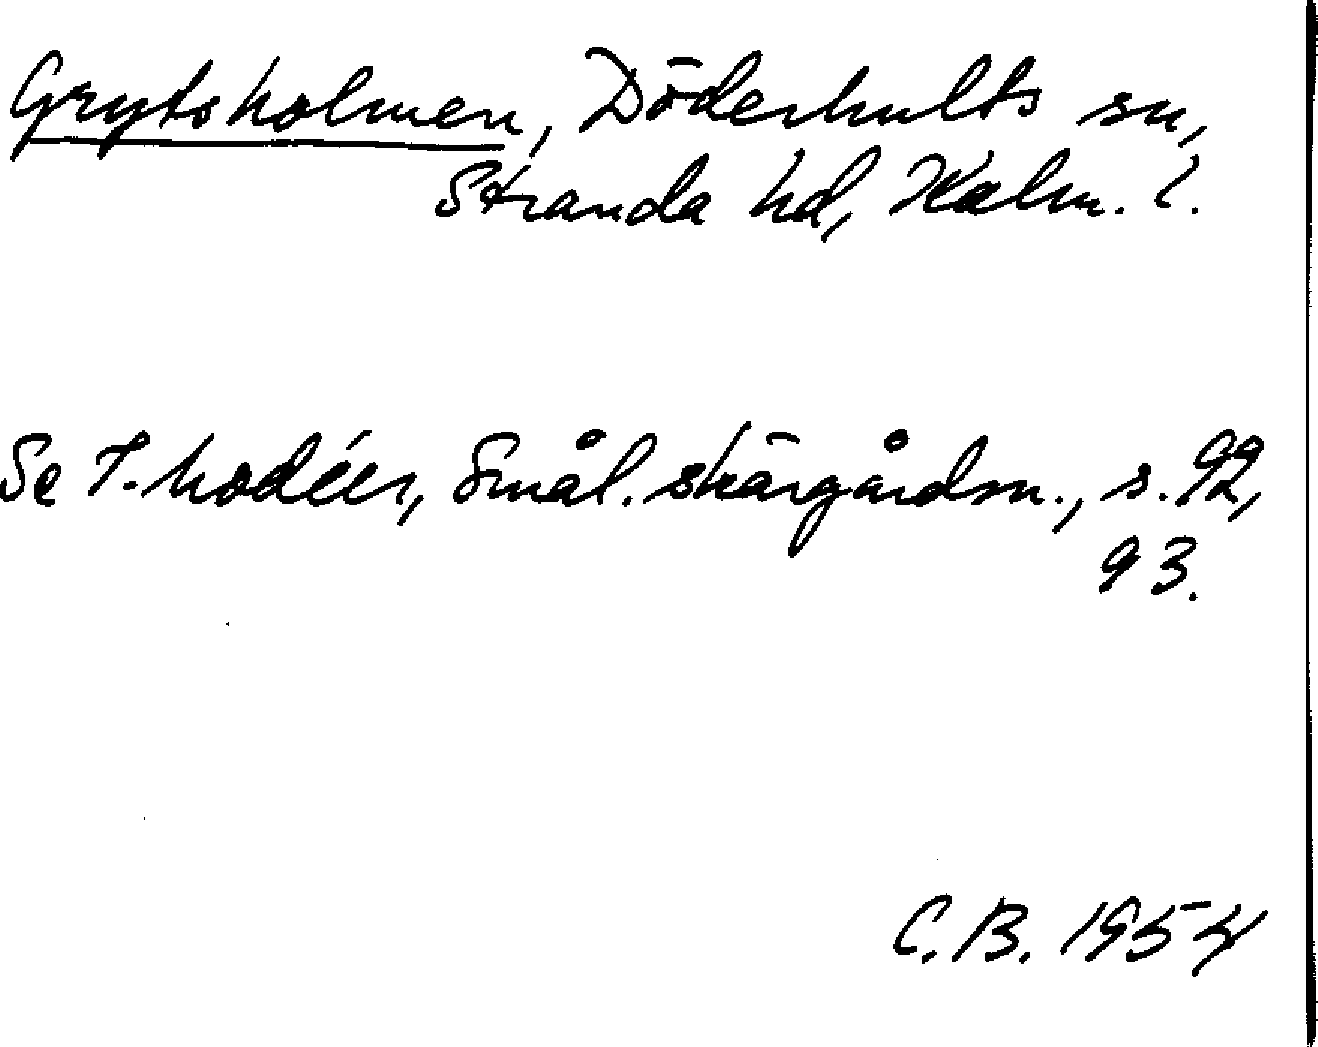 Grytsholmen, Döderhults sn,
Stranda hd, Kalm. l.
Se I. Modéer, Smål. skärgårdsn., s. 92,
93.
C.B. 1954